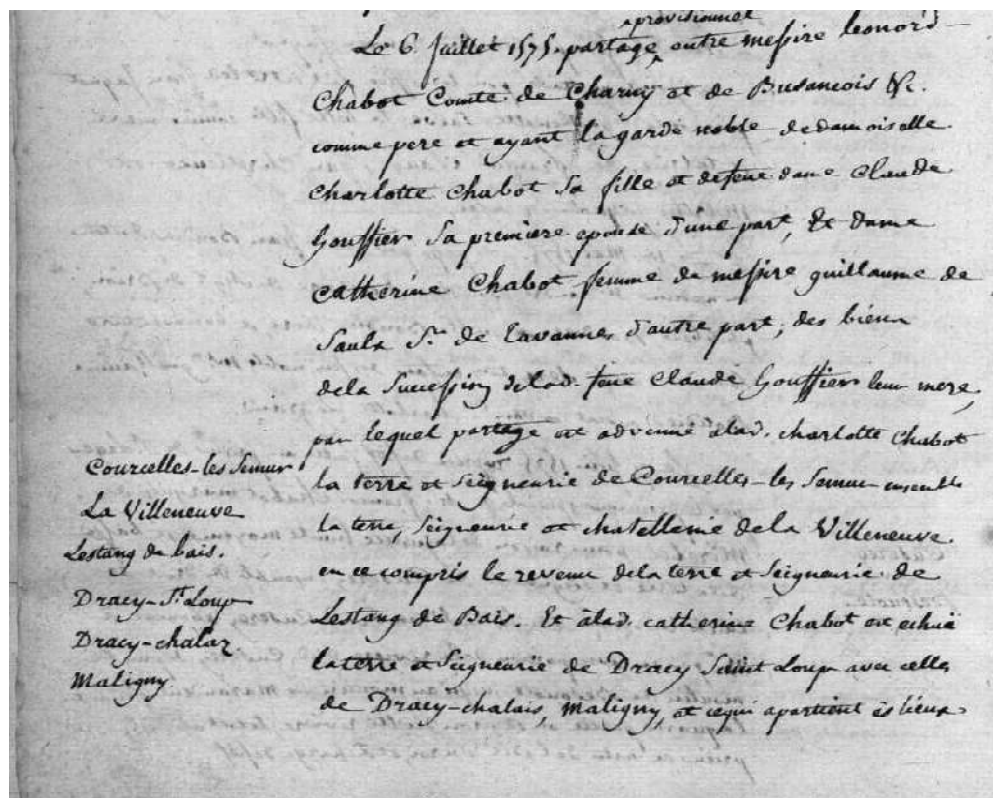 provisionnel
Le 6. Juillet 1575. partage entre messire Leonord
Chabot Comte de Charny et de Busancois &c.
comme pere et ayant la garde noble de damoiselle
Charlotte Chabot sa fille et defeue dame Claude
Gouffier sa premiere epouse d'une part, Et dame
Catherine Chabot femme de messire guillaume de
Saulx Sr. de Tavannes d'autre part, des biens
dela Succession delad. feue Claude Gouffier leur mere,
par lequel partage est advenue alad. charlotte Chabot
la terre et Seigneurie de Courcelles-les Semur ensemble
la terre, Seigneurie et chatellenie dela Villeneuve.
en ce compris le revenu dela terre et Seigneurie de
Lestang de Bais. Et àlad. catherine Chabot est echue
laterre et Seigneurie de Dracy Saint Loup avec celles
de Dracy-chalais, Maligny, et cequi apartient ès lieux
Courcelles-les Semur
La Villeneuve
Lestang de bais.
Dracy-St. Loup
Dracy-chalaz
Maligny